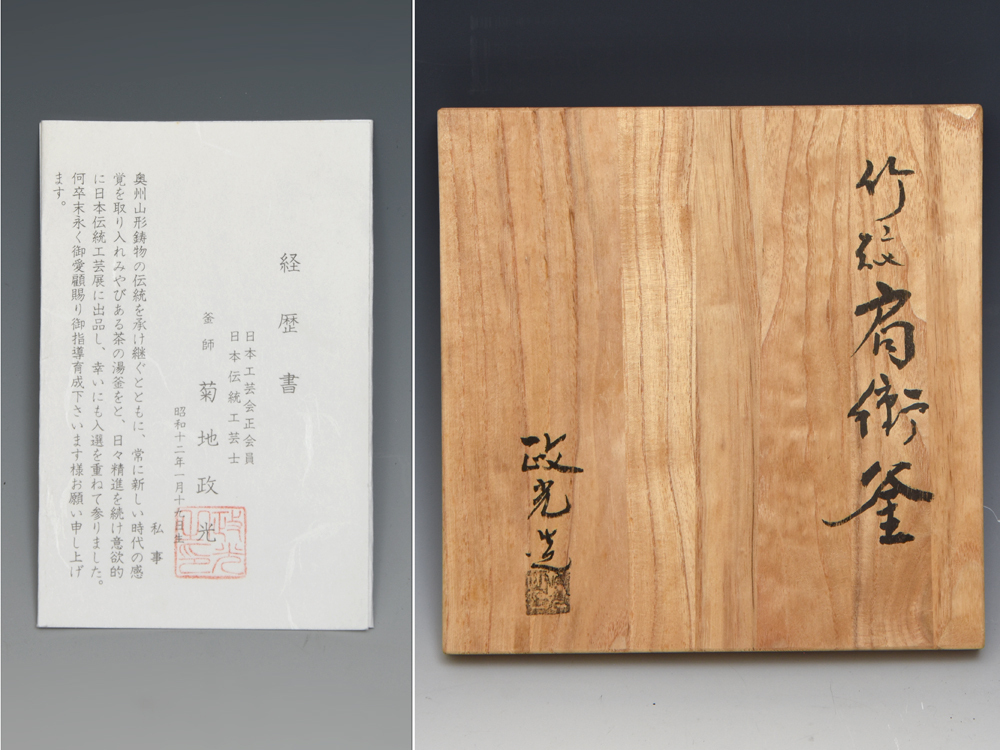 経歴書
日本工芸会正会員
日本伝統工芸士
釜師 菊地政光
昭和十二年一月十九日生
私事
奥州山形鋳物の伝統を承け継ぐとともに、常に新しい時代の感
覚を取り入れみやびある茶の湯釜をと、日々精進を続け意欲的
に日本伝統工芸展に出品し、幸いにも入選を重ねて参りました。
何卒末永く御愛顧賜り御指導育成下さいます様お願い申し上げ
ます。
竹紋肩衝釜
政光造